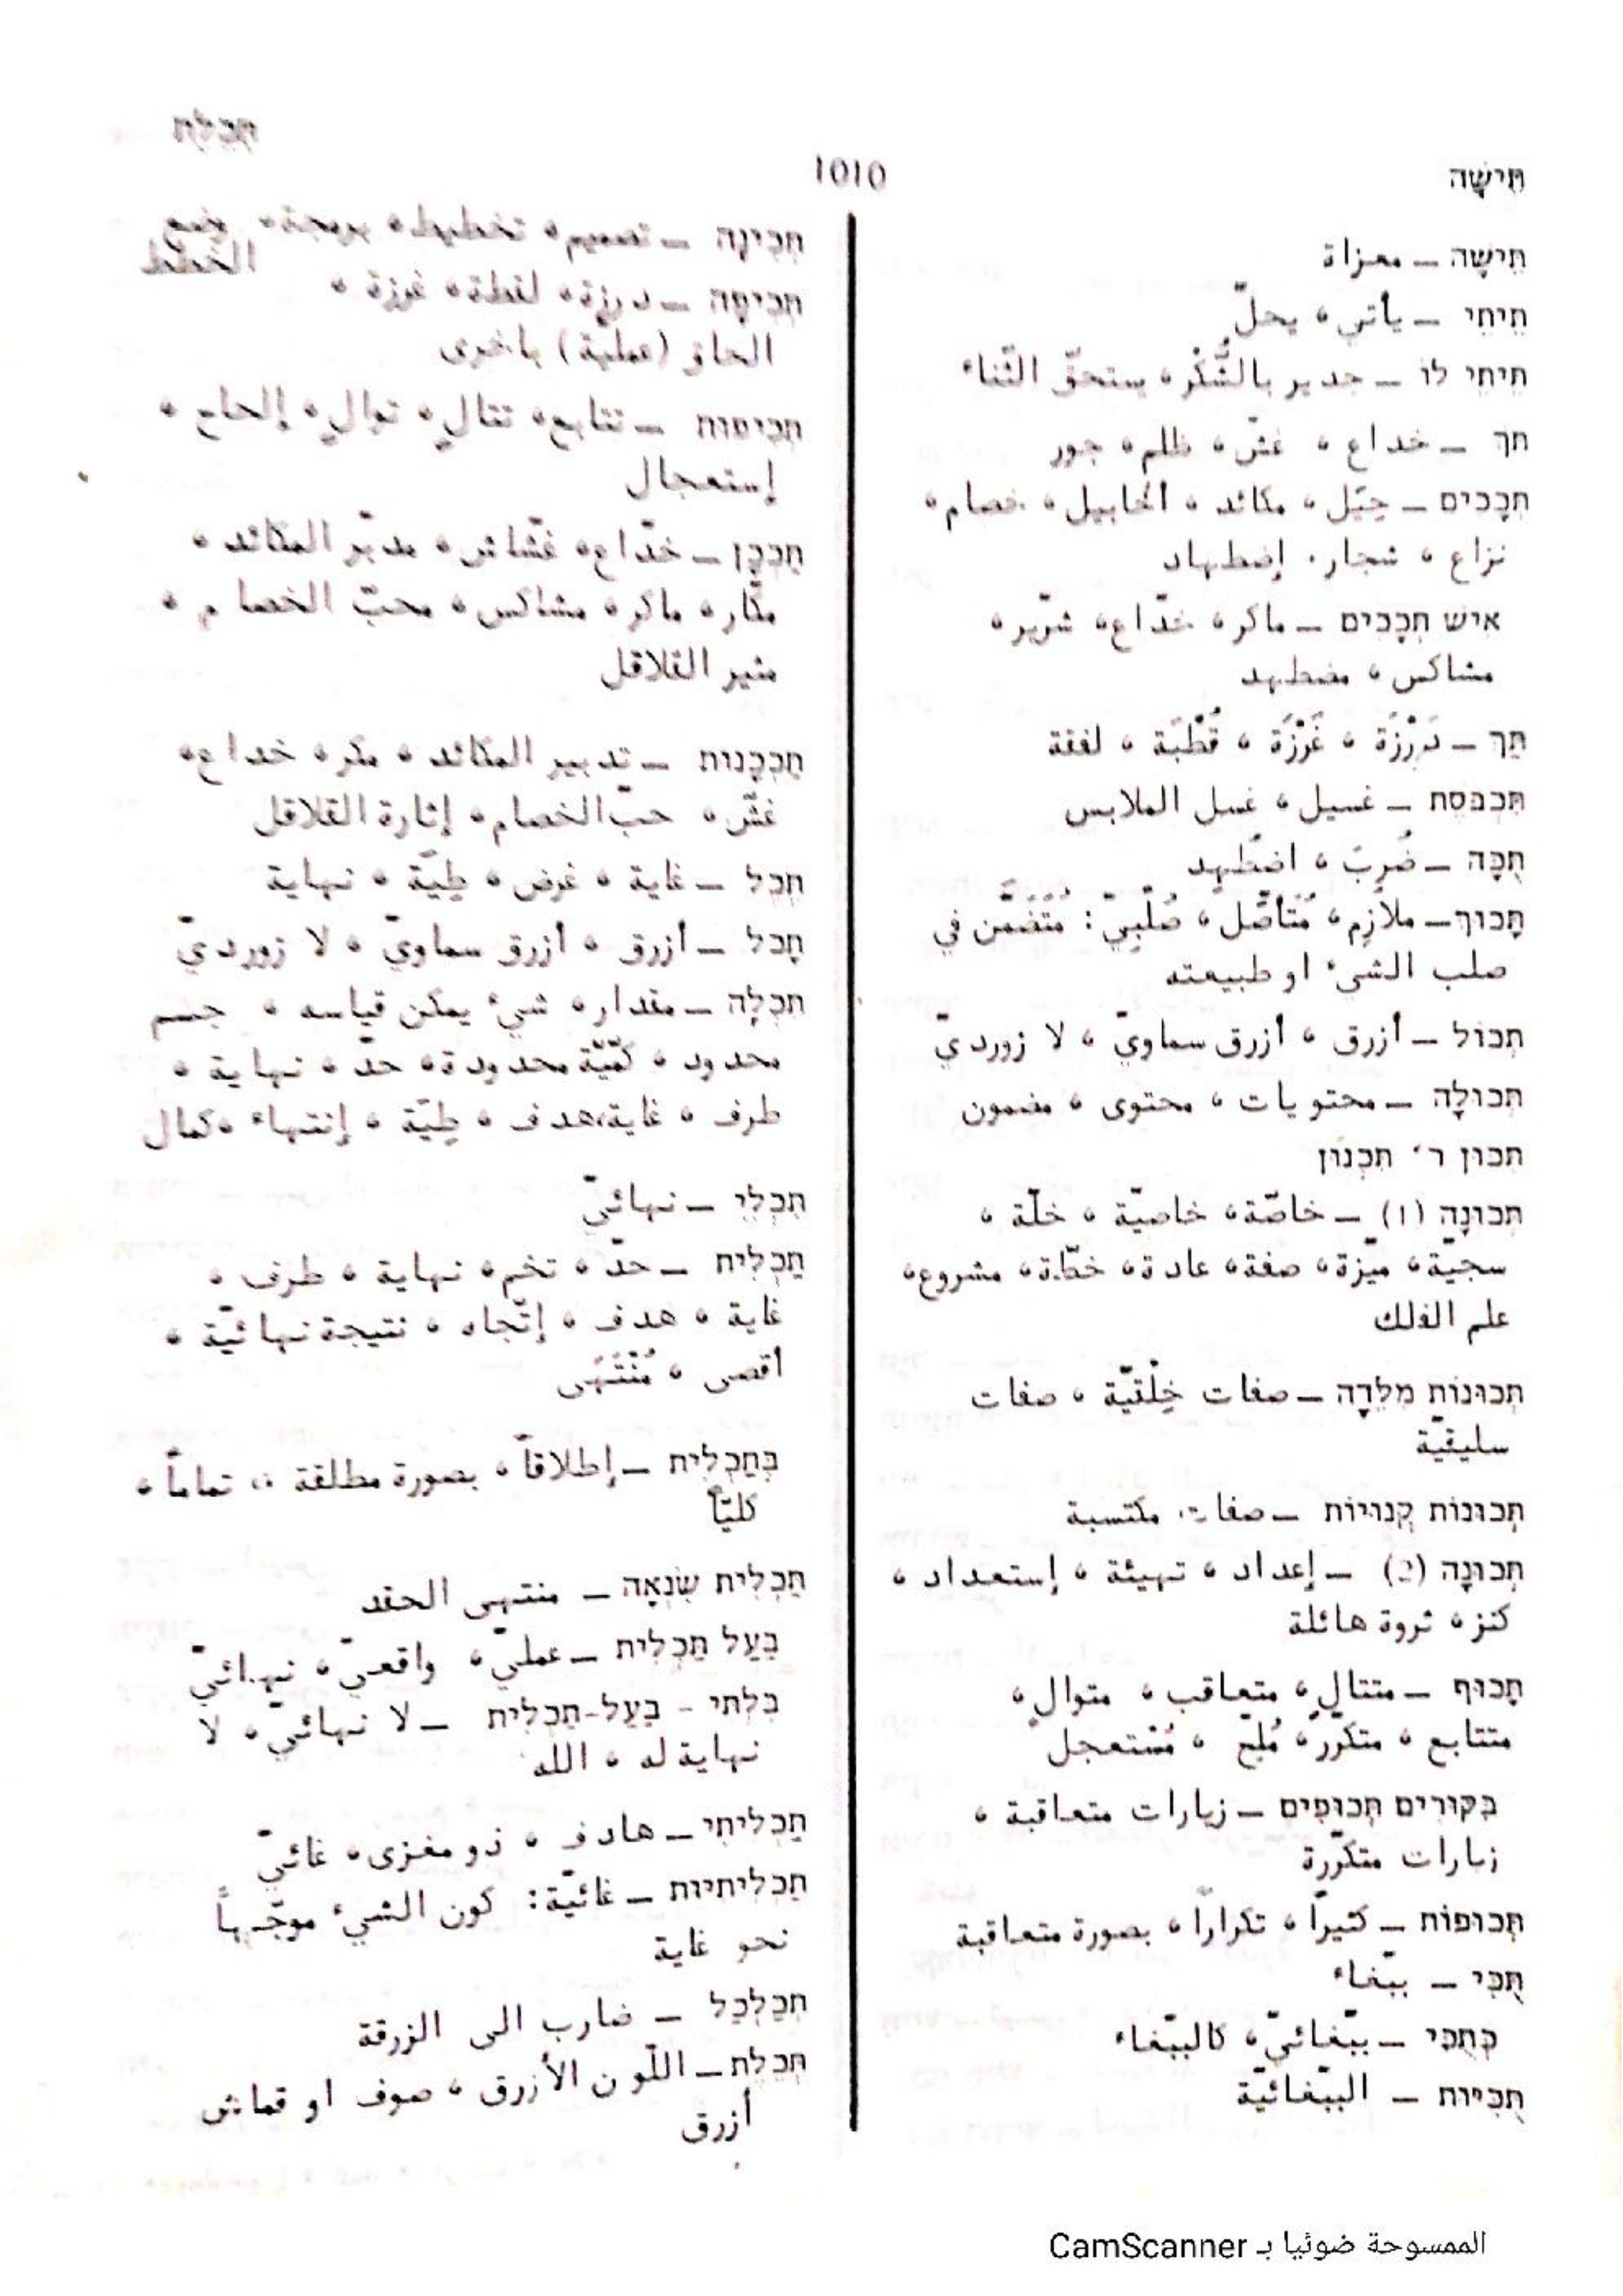 תַּיִשָׁה
1010
תְּכֵלֶת
תְּיָשָׁה – معزاة
תֵּיתֵי – يأتي، يحلّ
תֵּיתֵי לוֹ – جدير بالشُّكْر، يستحقّ الثّناء
תֹּךְ – خداع، غشّ، ظلم، جور
תְּכָכִים – حِيَل، مكائد، أحابيل، خصام،
نزاع، شجار، إضطهاد
אִישׁ תְּכָכִים – ماكر، خدّاع، شرّير،
مشاكس، مضطهد
תַּךְ – دَرْزَة، غَرْزَة، قُطْبَة، لفقة
תִּכְבֹּסֶת – غسيل، غسل الملابس
תֻּכָּה – ضُرِبَ، اضطُهِد
תָּכוּךְ – ملازم، مُتَأصّل، صُلْبِيّ: مُتَضَمَّن في
صلب الشيء او طبيعته
תָּכוֹל – أزرق، أزرق سماويّ، لا زورديّ
תְּכוּלָה – محتويات، محتوى، مضمون
תִּכּוּן ר׳ תִּכְנוּן
תְּכוּנָה (1) – خاصّة، خاصيّة، خلّة،
سجيّة، ميّزة، صفة، عادة، خطّة، مشروع،
علم الفلك
תְּכוּנוֹת מִלֵּדָה – صفات خِلْقيّة، صفات
سليقيّة
תְּכוּנוֹת קְנוּיוֹת – صفات مكتسبة
תְּכוּנָה (2) – إعداد، تهيئة، إستعداد،
كنز، ثروة هائلة
תָּכוּף – متتالٍ، متعاقب، متوالٍ،
متتابع، متكرّر، مُلِحّ، مُسْتعجل
בִּקּוּרִים תְּכוּפִים – زيارات متعاقبة،
زيارات متكرّرة
תְּכוּפוֹת – كثيراً، تكراراً، بصورة متعاقبة
תֻּכִּי – ببّغاء
כְּתֻכִּי – ببّغائيّ، كالببّغاء
תֻּכִּיּוּת – الببّغائيّة
תְּכִינָה – تصميم، تخطيط، برمجة، وضع
الخطط
תְּכִיפָה – درزة، لقطة، غرزة،
الحاق (عملية) باخرى
תְּכִיפוּת – تتابع، تتالٍ، توالٍ، إلحاح،
إستعجال
תַּכְכָן – خدّاع، غشّاش، مدبّر المكائد،
مكّار، ماكر، مشاكس، محبّ الخصام،
مثير القلاقل
תַּכְכָנוּת – تدبير المكائد، مكر، خداع،
غشّ، حبّ الخصام، إثارة القلاقل
תֵּכֶל – غاية، غرض، طِيّة، نهاية
תָּכֹל – أزرق، أزرق سماويّ، لا زورديّ
תִּכְלָה – مقدار، شيء يمكن قياسه، جسم
محدود، كمّيّة محدودة، حدّ، نهاية،
طرف، غاية، هدف، طِيّة، إنتهاء، كمال
תִּכְלִי – نهائيّ
תַּכְלִית – حدّ، تخم، نهاية، طرف،
غاية، هدف، إتّجاه، نتيجة نهائيّة،
أقصى، مُنْتَهَى
בְּתַכְלִית – إطلاقاً، بصورة مطلقة، تماماً،
كليّاً
תַּכְלִית שִׂנְאָה – منتهى الحقد
בַּעַל תַּכְלִית – عمليّ، واقعيّ، نهائيّ
בִּלְתִּי-בַּעַל-תַּכְלִית – لا نهائيّ، لا
نهاية له، الله
תַּכְלִיתִי – هادف، ذو مغزى، غائيّ
תַּכְלִיתִיּוּת – غائيّة: كون الشيء موجّهاً
نحو غاية
תְּכַלְכַּל – ضارب الى الزرقة
תְּכֵלֶת – اللّون الأزرق، صوف او قماش
أزرق
الممسوحة ضوئيا بـ CamScanner